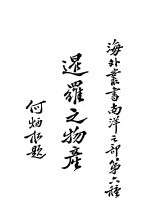 海外叢書南洋之部第六種
暹羅之物產
何炳松題